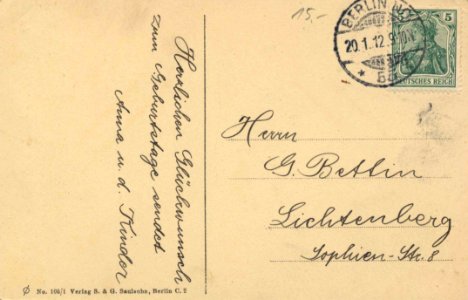 Herzlichen Glückwunsch
zum Geburtstage sendet
Anna u. d. Kinder
15.-
BERLIN NO
20.1.12.9
55
5
DEUTSCHES REICH
Herrn
G. Bettin
Lichtenberg
Sophien-Str. 8
No. 105/1 Verlag S. & G. Saulsohn, Berlin C. 2